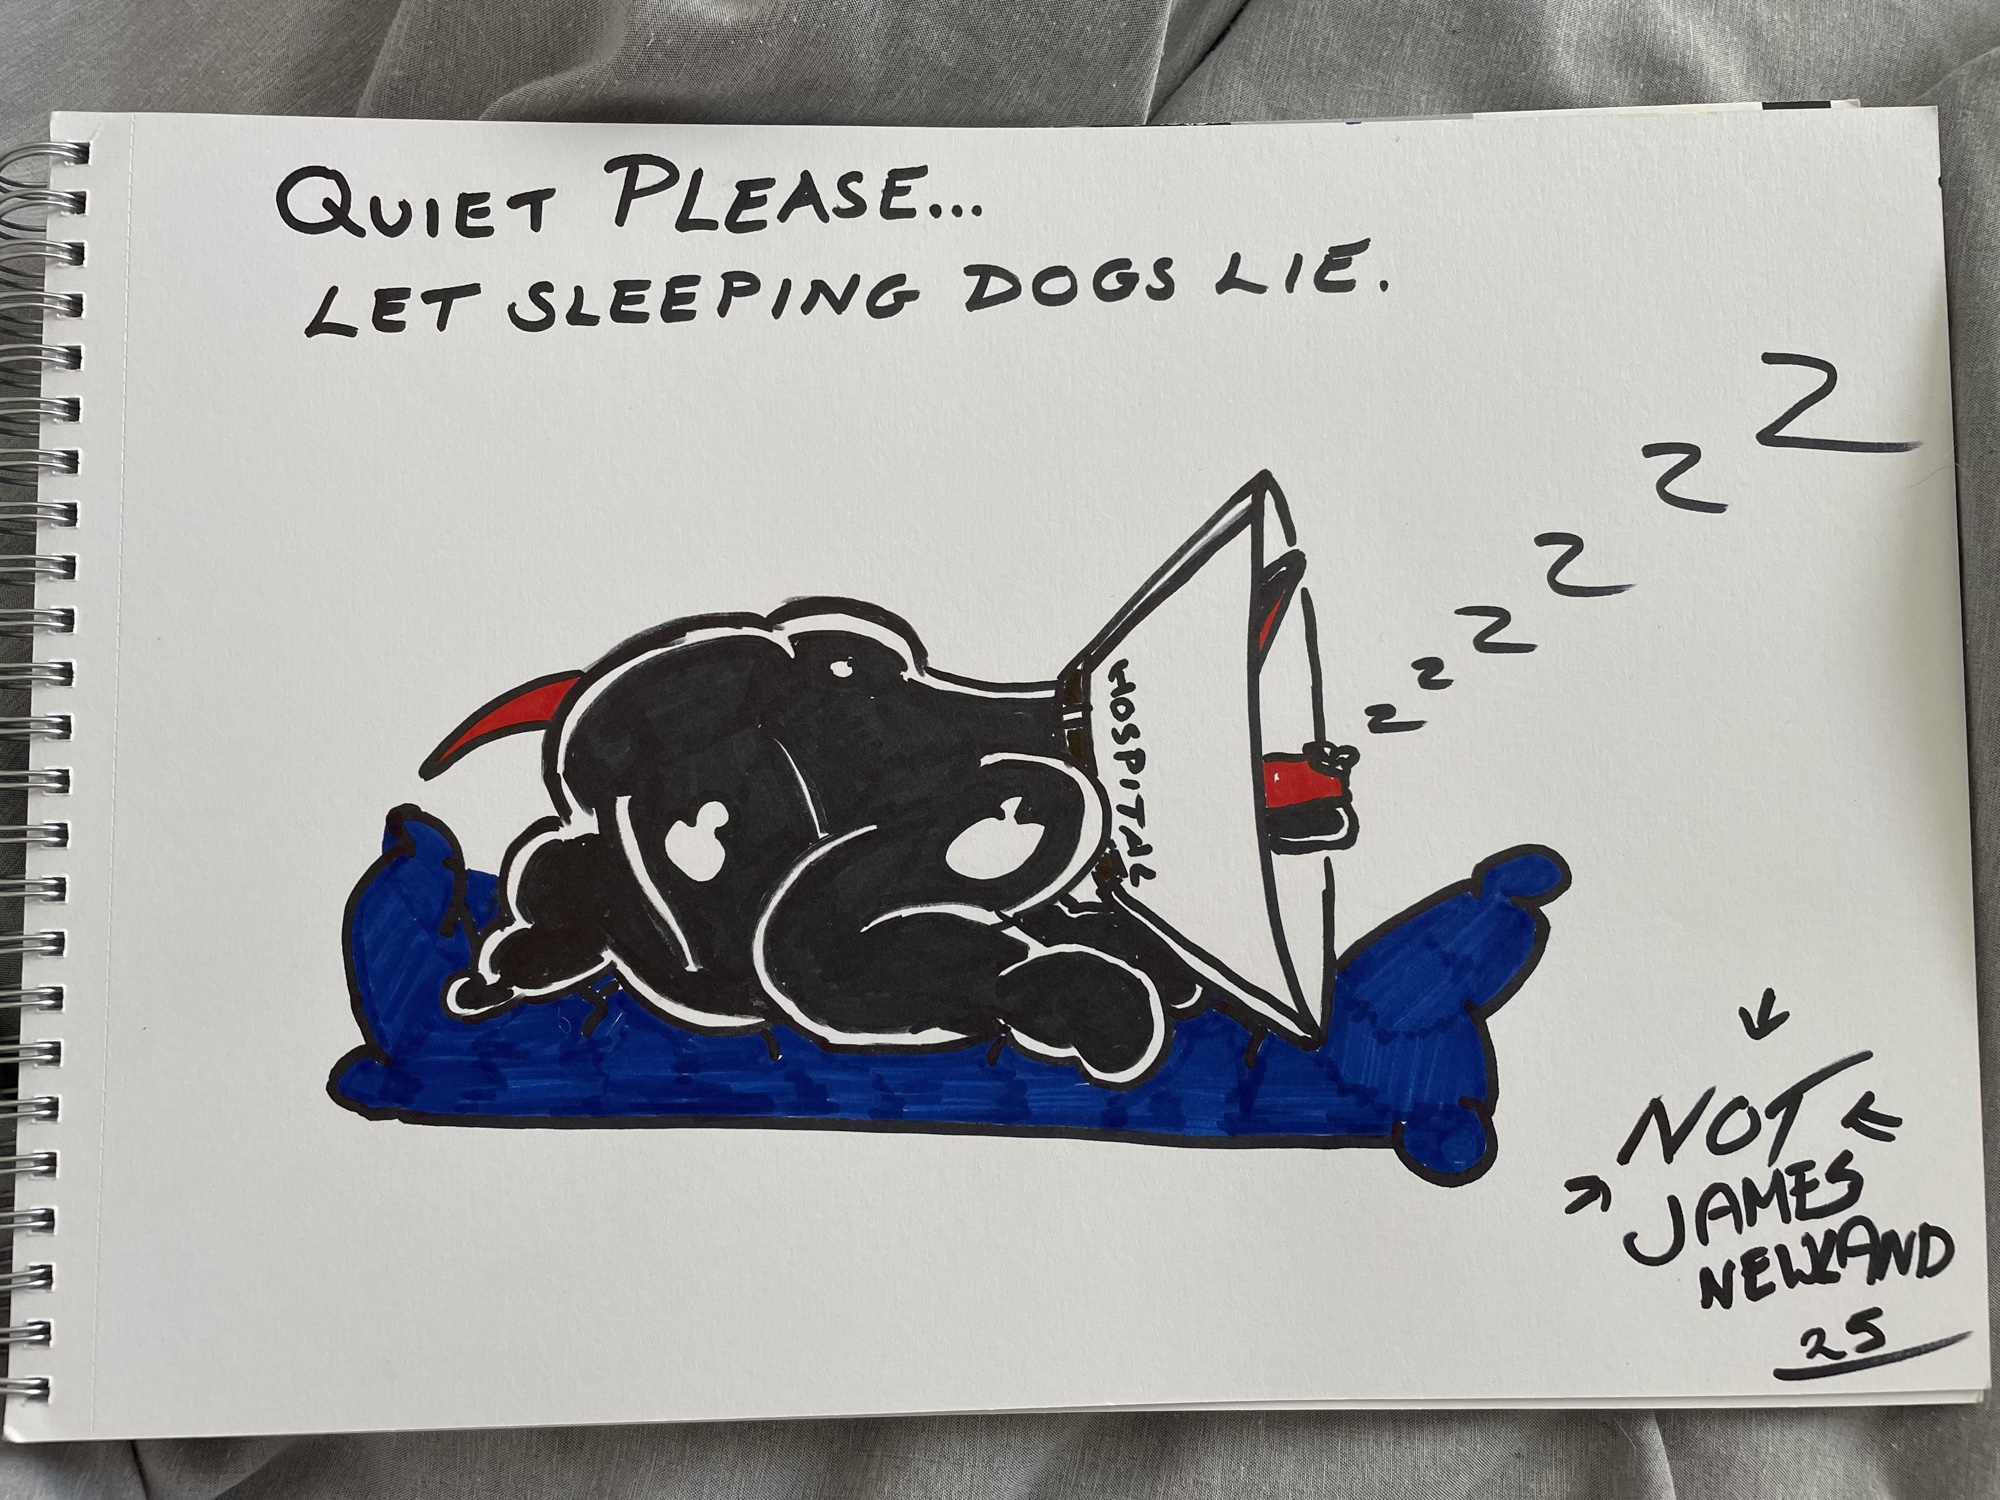 QUIET PLEASE...
LET SLEEPING DOGS LIE.
Z
Z
Z
Z
Z
Z
HOSPITAL
NOT
JAMES
NEWLAND
25